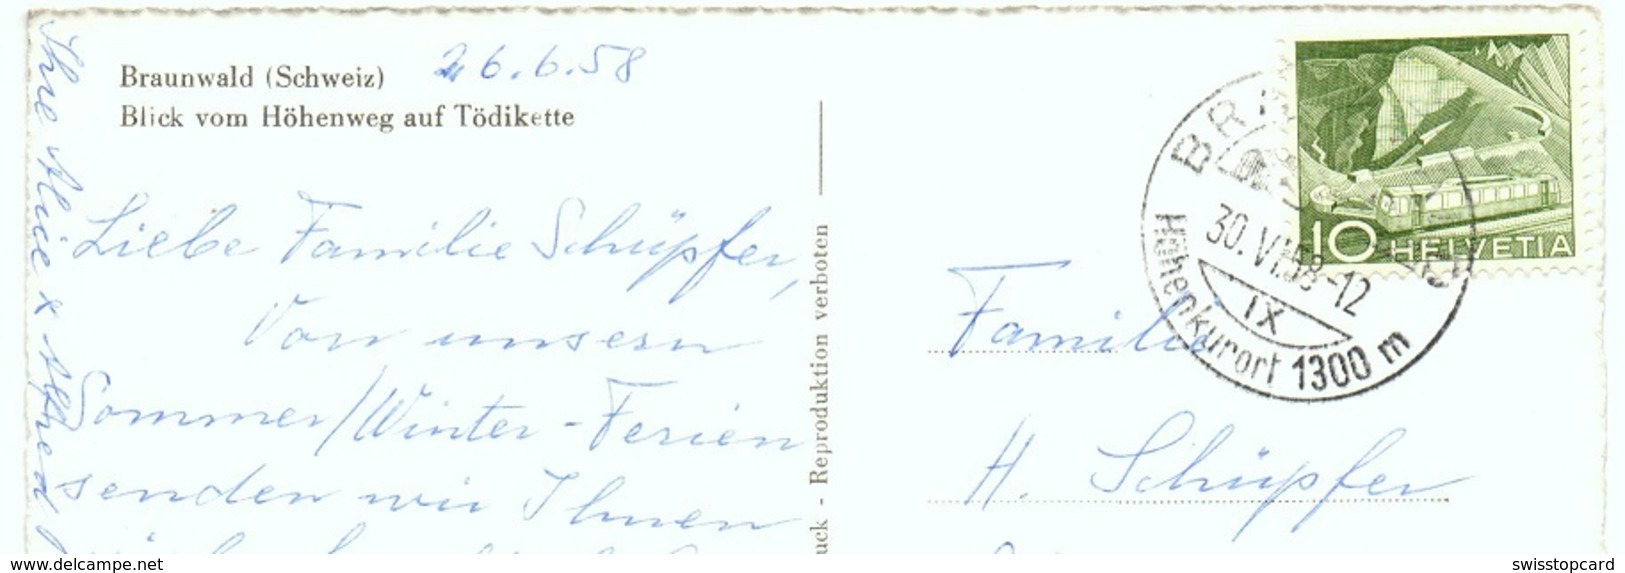 Braunwald (Schweiz)
Blick vom Höhenweg auf Tödikette
26.6.58
Liebe Familie Schüpfer,
Von unsern
Sommer/Winter-Ferien
senden wir Ihnen
Ihre Alice & Alfred
uck - Reproduktion verboten
Familie
H. Schüpfer
30.VI.58-12
IX
Höhenkurort 1300 m
10 HELVETIA
https://www.delcampe.net
swisstopcard